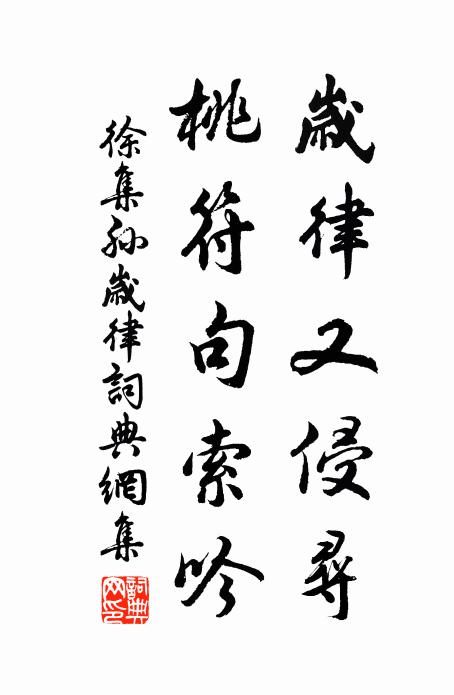 歲律又侵尋
桃符句索吟
徐集孫歲律詞典網集
詞典網印